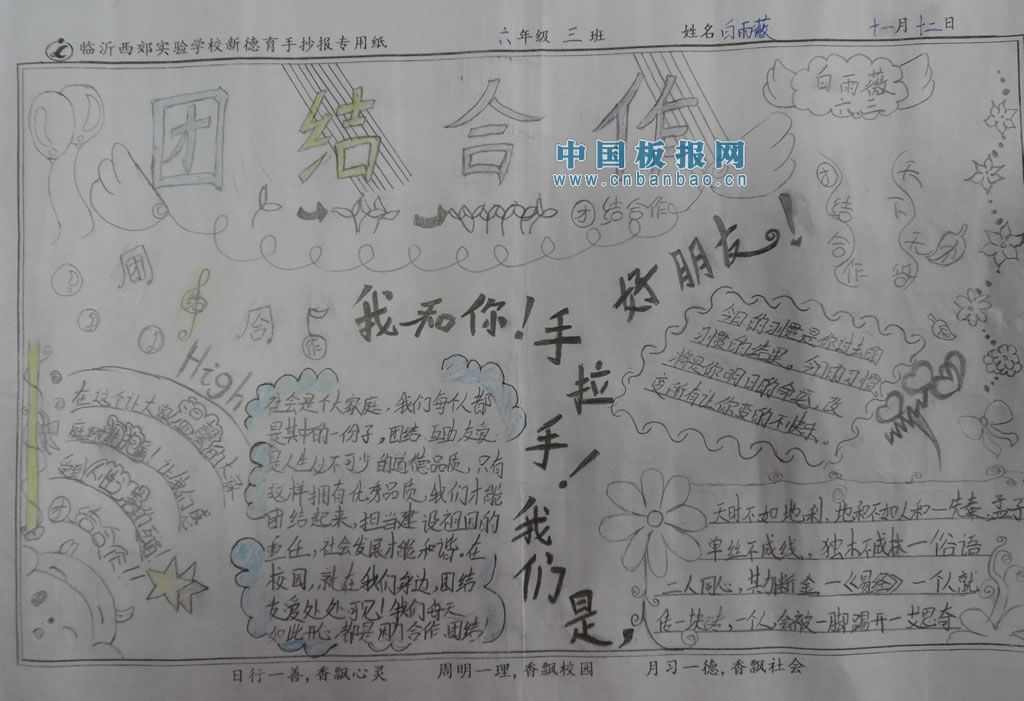 临沂西郊实验学校新德育手抄报专用纸 六年级 三班 姓名 白雨薇 十一月十二日
团结合作
白雨薇
六、三
中国板报网
www.cnbanbao.cn
团结合作
团结合作
天下无敌
团
合
作
High
我和你!手拉手!我们是,好朋友!
在这个让大家温馨的大家
庭
团结合作!!
社会是个大家庭,我们每个人都
是其中的一份子。团结、互助、友谊
是人生必不可少的道德品质,只有
这样拥有优秀品质,我们才能
团结起来,担当建设祖国的
重任,社会发展才能和谐。在
校园,就在我们身边,团结
友爱处处可见!我们每天
如此开心,都是用合作、团结!
今日的习惯是你过去的
习惯的结果。今日的习惯
将是你明日的命运,改
变所有让你变的不快乐。
天时不如地利,地和不如人和一先秦,孟子
单丝不成线,独木不成林一俗语
二人同心,其力断金一《易经》一个人就
一个人会被一脚踢开一艾思奇
日行一善,香飘心灵 周明一理,香飘校园 月习一德,香飘社会